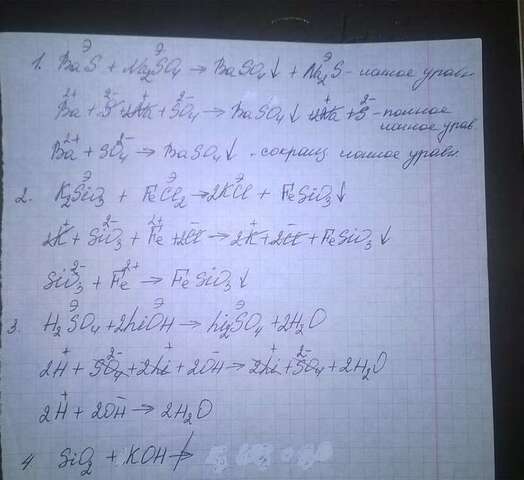 Э Э Э
1. BaS + Na₂SO₄ → BaSO₄↓ + Na₂S - ионное уравн
Ba²⁺ + S²⁻ + 2Na⁺ + SO₄²⁻ → BaSO₄↓ + 2Na⁺ + S²⁻ - полное
ионное урав.
Ba²⁺ + SO₄²⁻ → BaSO₄↓ - сокращ ионное уравн
Э Э Э
2. K₂SiO₃ + FeCl₂ → 2KCl + FeSiO₃↓
2K⁺ + SiO₃²⁻ + Fe²⁺ + 2Cl⁻ → 2K⁺ + 2Cl⁻ + FeSiO₃↓
SiO₃²⁻ + Fe²⁺ → FeSiO₃↓
Э Э Э
3. H₂SO₄ + 2LiOH → Li₂SO₄ + 2H₂O
2H⁺ + SO₄²⁻ + 2Li⁺ + 2OH⁻ → 2Li⁺ + SO₄²⁻ + 2H₂O
2H⁺ + 2OH⁻ → 2H₂O
4 SiO₂ + KOH ↛